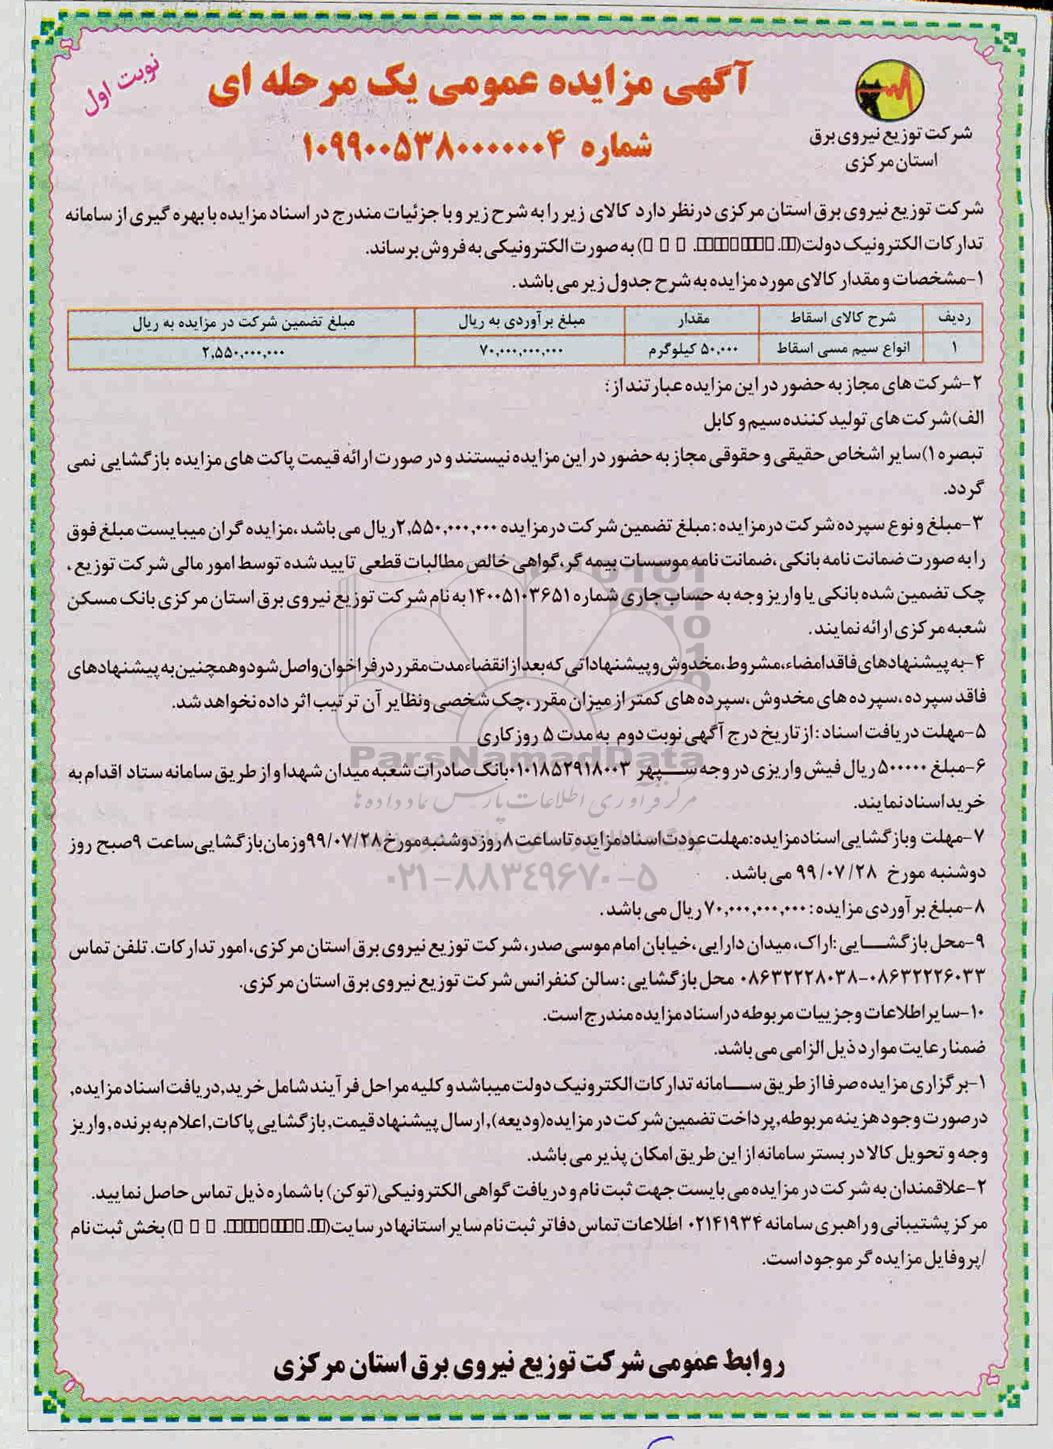 نوبت اول
آگهی مزایده عمومی یک مرحله ای
شماره ۱۰۹۹۰۰۵۳۸۰۰۰۰۰۰۴
شرکت توزیع نیروی برق
استان مرکزی
شرکت توزیع نیروی برق استان مرکزی درنظر دارد کالای زیر را به شرح زیر و با جزئیات مندرج در اسناد مزایده با بهره گیری از سامانه
تدارکات الکترونیک دولت() به صورت الکترونیکی به فروش برساند.
۱-مشخصات و مقدار کالای مورد مزایده به شرح جدول زیر می باشد.
ردیف شرح کالای اسقاط مقدار مبلغ برآوردی به ریال مبلغ تضمین شرکت در مزایده به ریال
۱ انواع سیم مسی اسقاط ۵۰,۰۰۰ کیلوگرم ۷۰,۰۰۰,۰۰۰,۰۰۰ ۲,۵۵۰,۰۰۰,۰۰۰
۲-شرکت های مجاز به حضور در این مزایده عبارتند از:
الف)شرکت های تولید کننده سیم و کابل
تبصره۱)سایر اشخاص حقیقی و حقوقی مجاز به حضور در این مزایده نیستند و در صورت ارائه قیمت پاکت های مزایده بازگشایی نمی
گردد.
۳-مبلغ و نوع سپرده شرکت درمزایده: مبلغ تضمین شرکت درمزایده ۲,۵۵۰,۰۰۰,۰۰۰ریال می باشد ،مزایده گران میبایست مبلغ فوق
را به صورت ضمانت نامه بانکی ،ضمانت نامه موسسات بیمه گر،گواهی خالص مطالبات قطعی تایید شده توسط امور مالی شرکت توزیع ،
چک تضمین شده بانکی یا واریز وجه به حساب جاری شماره ۱۴۰۰۵۱۰۳۶۵۱ به نام شرکت توزیع نیروی برق استان مرکزی بانک مسکن
شعبه مرکزی ارائه نمایند.
۴-به پیشنهادهای فاقد امضاء،مشروط،مخدوش و پیشنهاداتی که بعد از انقضاء مدت مقرر در فراخوان واصل شود و همچنین به پیشنهادهای
فاقد سپرده ،سپرده های مخدوش ،سپرده های کمتر از میزان مقرر،چک شخصی ونظایر آن ترتیب اثر داده نخواهد شد.
۵-مهلت دریافت اسناد: از تاریخ درج آگهی نوبت دوم به مدت ۵ روز کاری
ParsNamadData
۶-مبلغ ۵۰۰۰۰۰ ریال فیش واریزی در وجه سپهر ۰۱۰۱۸۵۲۹۱۸۰۰۳بانک صادرات شعبه میدان شهدا و از طریق سامانه ستاد اقدام به
خرید اسناد نمایند.
مرکز فرآوری اطلاعات پارس نماد داده ها
۷-مهلت وبازگشایی اسناد مزایده:مهلت عودت اسناد مزایده تا ساعت ۸ روز دوشنبه مورخ ۹۹/۰۷/۲۸ وزمان بازگشایی ساعت ۹صبح روز
دوشنبه مورخ ۹۹/۰۷/۲۸ می باشد.
۰۲۱-۸۸۳۴۹۶۷۰-۵
۸-مبلغ برآوردی مزایده: ۷۰,۰۰۰,۰۰۰,۰۰۰ ریال می باشد.
۹-محل بازگشایی :اراک، میدان دارایی ،خیابان امام موسی صدر، شرکت توزیع نیروی برق استان مرکزی، امور تدارکات. تلفن تماس
۰۸۶۳۲۲۲۶۰۳۳-۰۸۶۳۲۲۲۸۰۳۸ محل بازگشایی: سالن کنفرانس شرکت توزیع نیروی برق استان مرکزی.
۱۰-سایر اطلاعات وجزییات مربوطه در اسناد مزایده مندرج است.
ضمنا رعایت موارد ذیل الزامی می باشد.
۱-برگزاری مزایده صرفا از طریق سامانه تدارکات الکترونیک دولت میباشد و کلیه مراحل فرآیند شامل خرید,دریافت اسناد مزایده,
درصورت وجود هزینه مربوطه,پرداخت تضمین شرکت در مزایده(ودیعه),ارسال پیشنهاد قیمت,بازگشایی پاکات,اعلام به برنده,واریز
وجه و تحویل کالا در بستر سامانه از این طریق امکان پذیر می باشد.
۲-علاقمندان به شرکت در مزایده می بایست جهت ثبت نام و دریافت گواهی الکترونیکی(توکن) با شماره ذیل تماس حاصل نمایید.
مرکز پشتیبانی و راهبری سامانه ۰۲۱۴۱۹۳۴ اطلاعات تماس دفاتر ثبت نام سایر استانها در سایت() بخش ثبت نام
/پروفایل مزایده گر موجود است.
روابط عمومی شرکت توزیع نیروی برق استان مرکزی